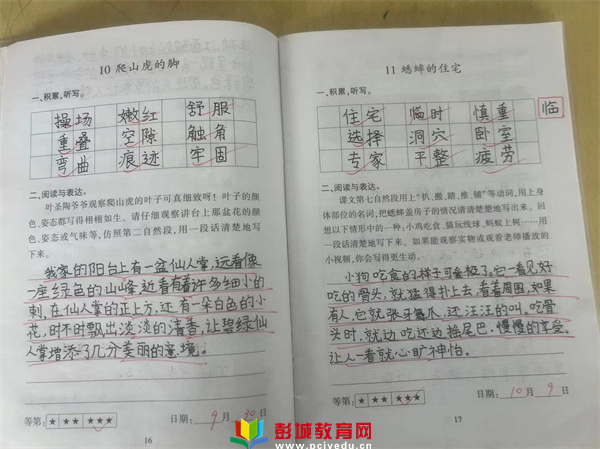 10 爬山虎的脚
一、积累,听写。
操场 嫩红 舒服
重叠 空隙 触角
弯曲 痕迹 牢固
二、阅读与表达。
叶圣陶爷爷观察爬山虎的叶子可真细致呀!叶子的颜
色、姿态都写得栩栩如生。请仔细观察讲台上那盆花的颜
色、姿态或气味等,仿照第二自然段,用一段话清楚地写
下来。
我家的阳台上有一盆仙人掌,远看像
一座绿色的山峰,近看有着许多细小的
刺,在仙人掌的正上方,还有一朵白色的小
花,时不时飘出淡淡的清香,让碧绿仙
人掌增添了几分美丽的意境。
等第: ★ ★★ ★★★ 日期: 9 月 30 日
16
11 蟋蟀的住宅
一、积累,听写。
住宅 临时 慎重 临
选择 洞穴 卧室
专家 平整 疲劳
二、阅读与表达。
课文第七自然段用上“扒、搬、踏、推、铺”等动词,用上身
体部位的名词,把蟋蟀盖房子的情况清清楚楚地写出来。回
想以下情形中的一种:小鸡吃食、猫玩线球、蚂蚁上树……用
一段话清清楚楚地写下来。如果能观察实物或观看老师播放的
小视频,你会写得更生动。
小狗吃食的样子可金极了,它一看见好
吃的骨头,就猛得扑上去,看着周围,如果
有人,它就张牙舞爪,还汪汪的叫。吃骨
头时,就边吃还边摇尾巴,慢慢的享受。
让人一看就心旷神怡。
等第: ★ ★★ ★★★ 日期: 10 月 9 日
17
彭城教育网
www.pcjyedu.cn